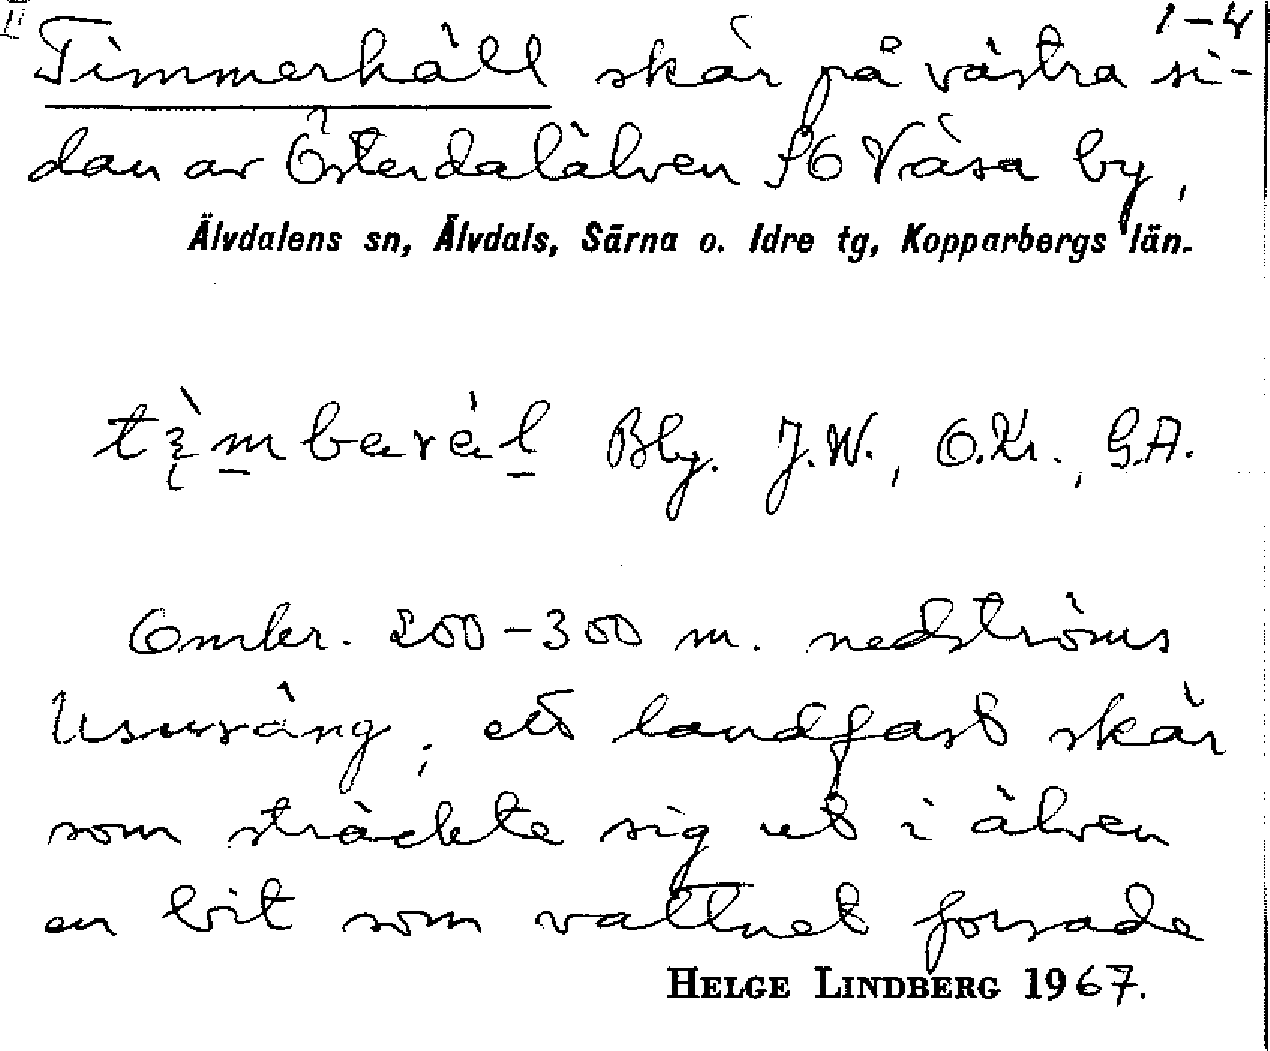 II
1-4
Timmerhäll skär på västra si-
dan av Österdalälven SO Våsa by,
Älvdalens sn, Älvdals, Särna o. Idre tg, Kopparbergs län.
Bly. J.W., O.Kr., G.A.
Omkr. 200-300 m. nedströms
Usuväng; ett landfast skär
som sträckte sig ut i älven
en bit som vattnet forsade
HELGE LINDBERG 1967.